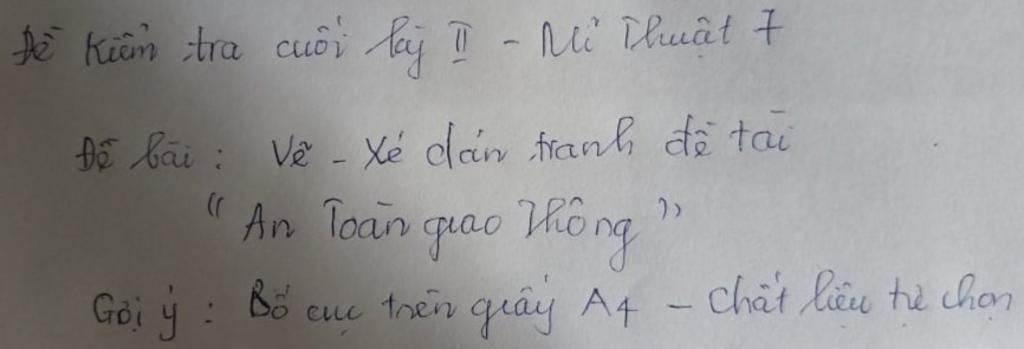 Đề Kiểm tra cuối kỳ II - Mĩ Thuật 7
Đề bài : Vẽ - Xé dán tranh đề tài
“ An Toàn giao Thông ”
Gợi ý : Bố cục trên giấy A4 - Chất liệu tự chọn